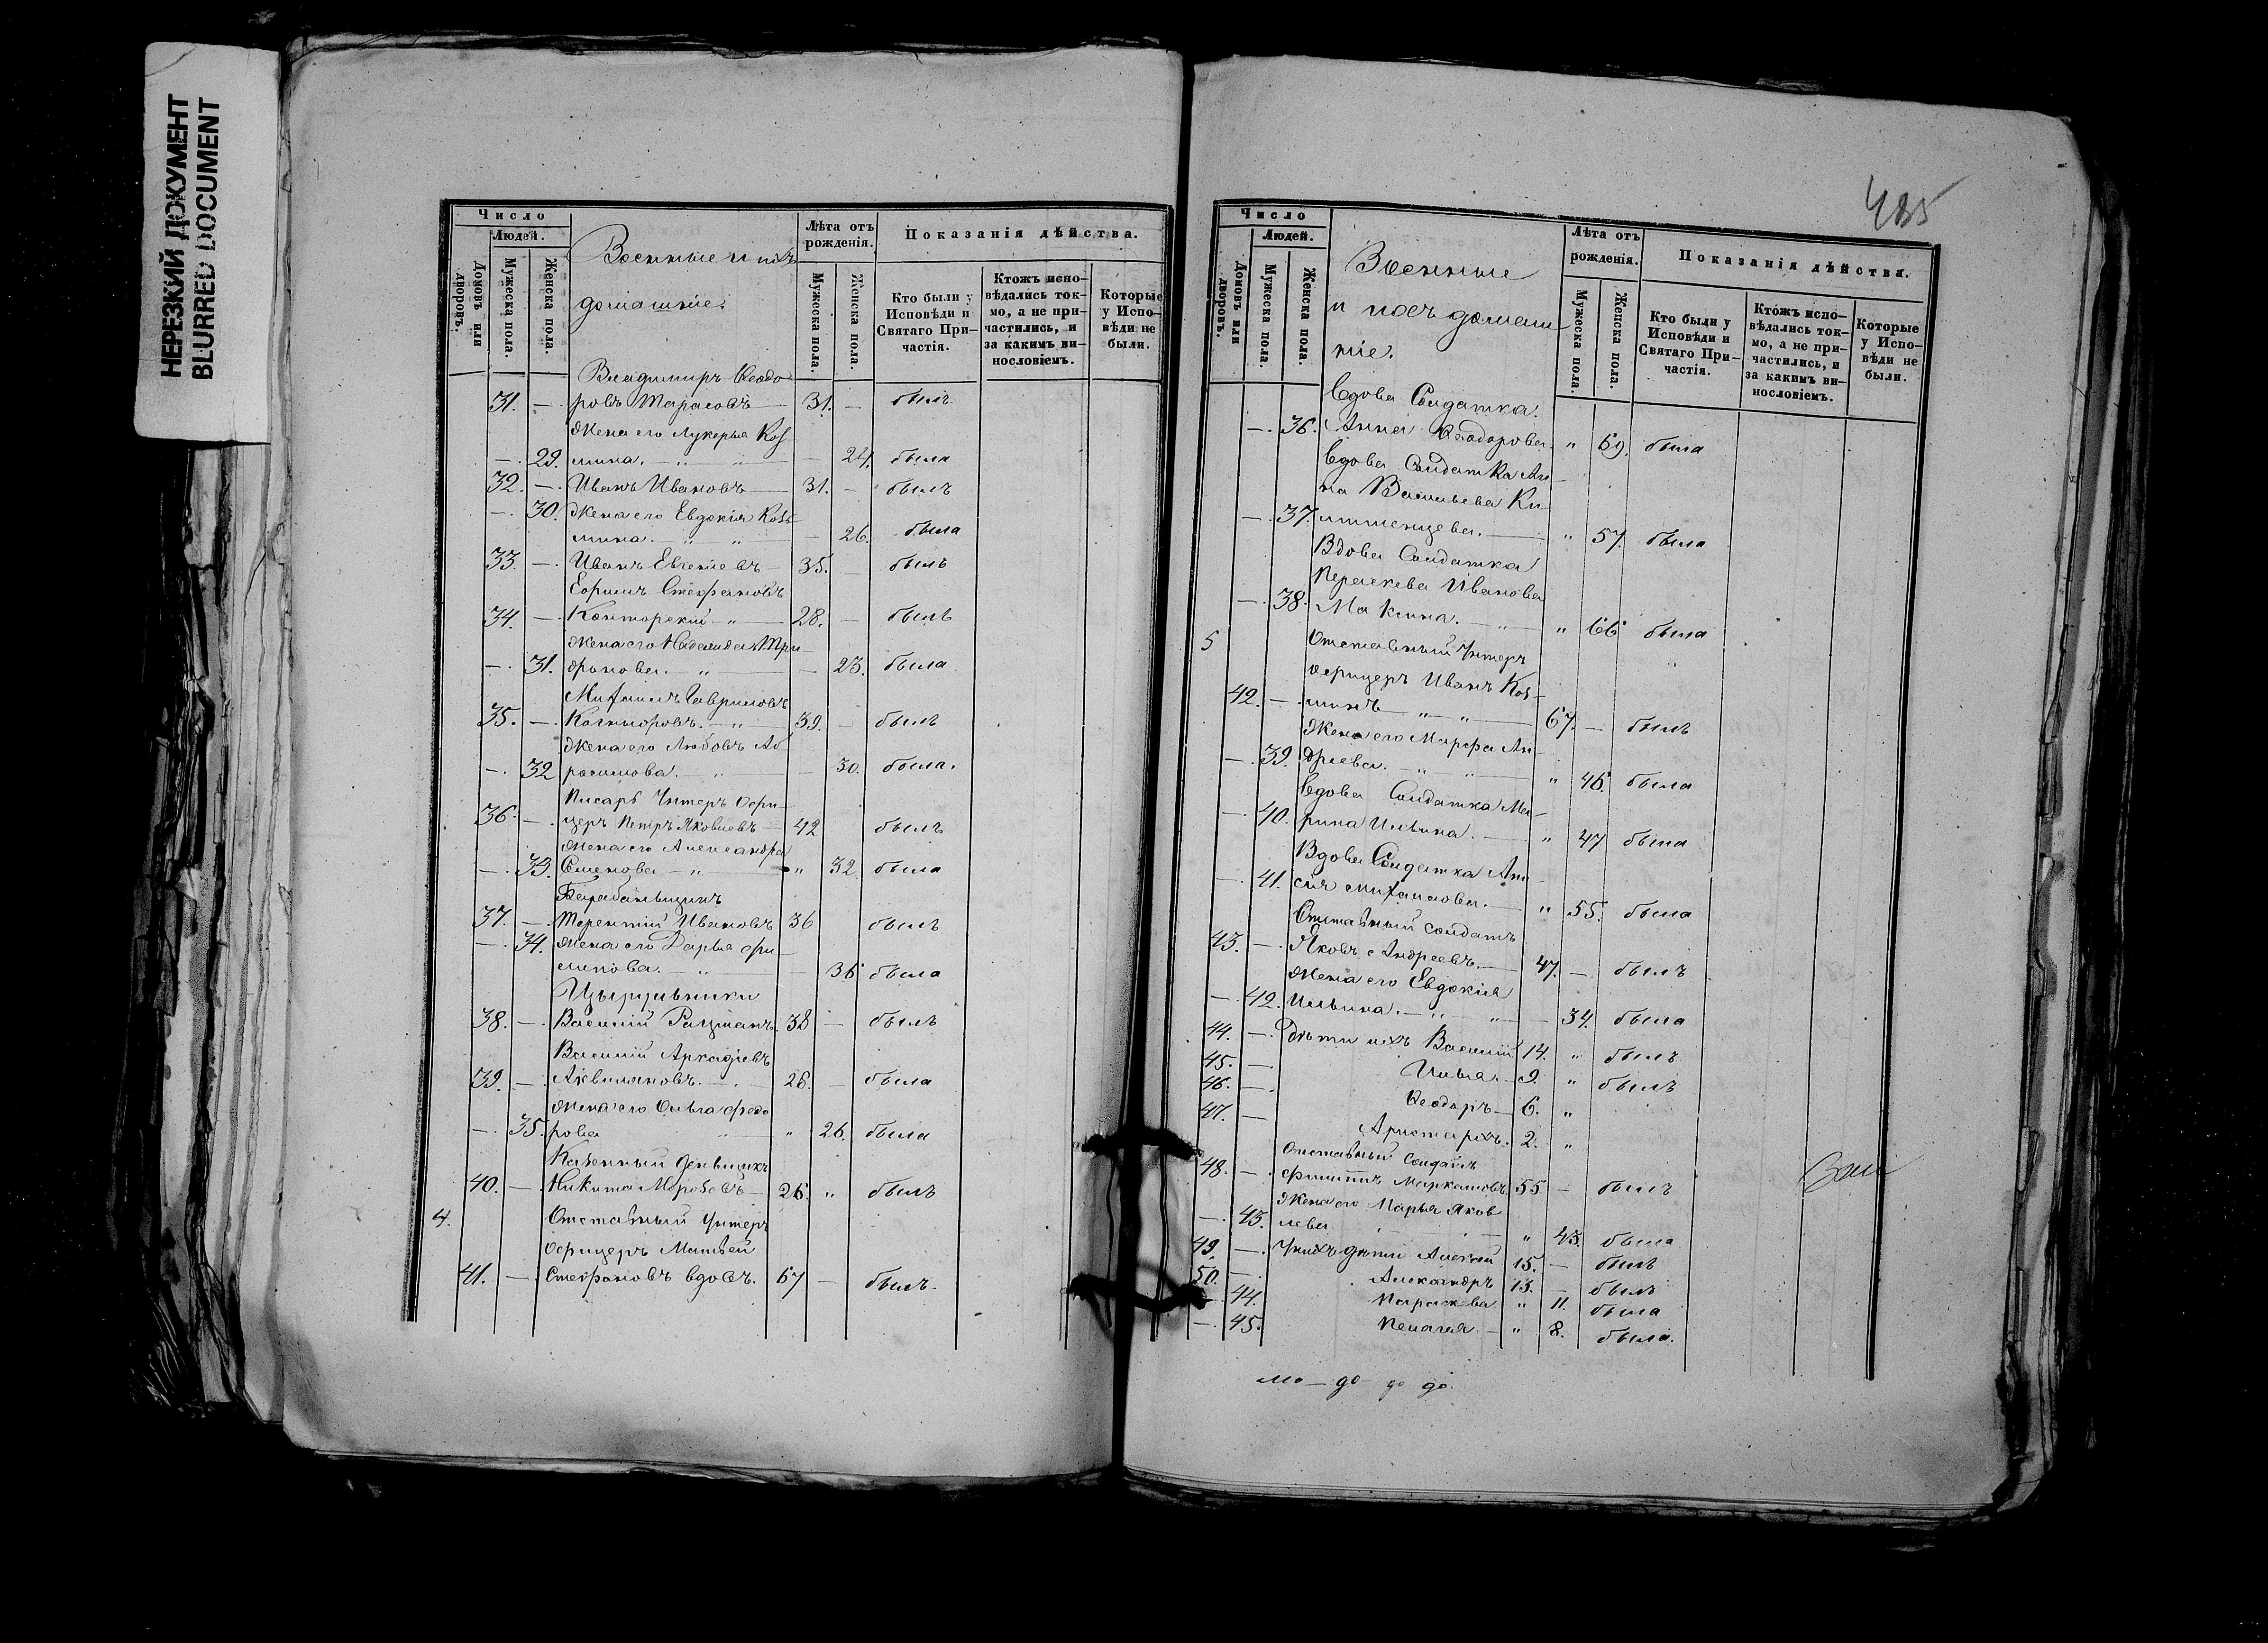 НЕРЕЗКИЙ ДОКУМЕНТ
BLURRED DOCUMENT
Число
Людей.
Домовъ или дворовъ.
Мужеска пола.
Женска пола.
Военные и ихъ
домашніе.
Лѣта отъ рожденія.
Мужеска пола.
Женска пола.
Показанія дѣйства.
Кто были у Исповѣди и Святаго Причастія.
Ктожъ исповѣдались токмо, а не причастились, и за какимъ винословіемъ.
Которые у Исповѣди не были.
Владимиръ Ѳеодо
31. — ровъ Тарасовъ 31. — былъ
Жена его Лукерья Коз
— 29. мина. — 24. была
32. — Иванъ Ивановъ 31. — былъ
— 30. Жена его Евдокія Козь
мина. — 26. была
33. — Иванъ Евгеніевъ 35. — былъ
Стефановъ
34. — Конторскій 28. — былъ
Жена его
— 31. фонова. — 23. была
Михаилъ Гавриловъ
35. — 39. — былъ
Жена его Любовь Аб
— 32 росимова. — 30. была.
Писарь Унтеръ Офи
36. — церъ Петръ Яковлевъ 42 былъ
Жена его Александра
— 33. Семенова " 32. была
Барабаньщикъ
37. — Терентій Ивановъ 36 былъ
— 34. Жена его Дарья Фи
липова. — 36 была
Цырульники
38. — Василій 38 — былъ
Василій Аркадіевъ
39. — 26. — была
Жена его Ольга Федо
— 35. рова " 26. была
Казенный деньщикъ
40. — Никита Морозовъ 26. " былъ
4. Отставный Унтеръ
Офицеръ Матвей
41. — Стефановъ вдовъ. 67 — былъ.
435
Число
Людей.
Домовъ или дворовъ.
Мужеска пола.
Женска пола.
Военные
и ихъ домаш
ніе.
Лѣта отъ рожденія.
Мужеска пола.
Женска пола.
Показанія дѣйства.
Кто были у Исповѣди и Святаго Причастія.
Ктожъ исповѣдались токмо, а не причастились, и за какимъ винословіемъ.
Которые у Исповѣди не были.
Вдова Солдатка
— 36. Анна Ѳеодорова " 69. была
Вдова Солдатка Ан
на Васильева
— 37. " 57. была
Вдова Солдатка
Параскева Иванова
— 38. Макина. " 66 была
5 Отставный Унтеръ
офицеръ Иванъ Коз
42. — минъ 67. — былъ
Жена его Марфа Ан
— 39. дреева. " 46. была
Вдова Солдатка Ма
— 40. рина Ильина. " 47 была
Вдова Солдатка
— 41. Михайлова. " 55. была
Отставный солдатъ
43. — Яковъ Андреевъ. 47. — былъ
Жена его Евдокія
— 42. Ильина. — 34. была
44. — Дѣти ихъ Василій 14. " былъ
45. — Илья. 9. " былъ
46. — Ѳеодоръ 6. "
47. — Аристархъ. 2. "
Отставный солдатъ
48. — Филиппъ 55. — былъ
Жена его Марья Яков
— 43. лева " 43. была
49. — У нихъ дѣти Алексей 15. — былъ
50. — Александръ 13. — былъ
44. Параскева " 11. была
— 45. Пелагея. " 8. была.